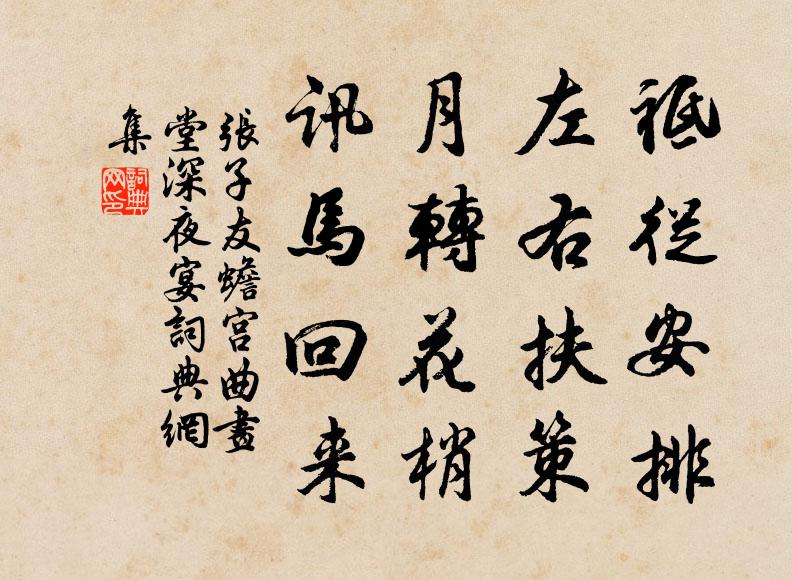 祗從安排
左右扶策
月轉花梢
訊馬回来
張子友蟾宮曲畫
堂深夜宴詞典網
集
詞典
网印